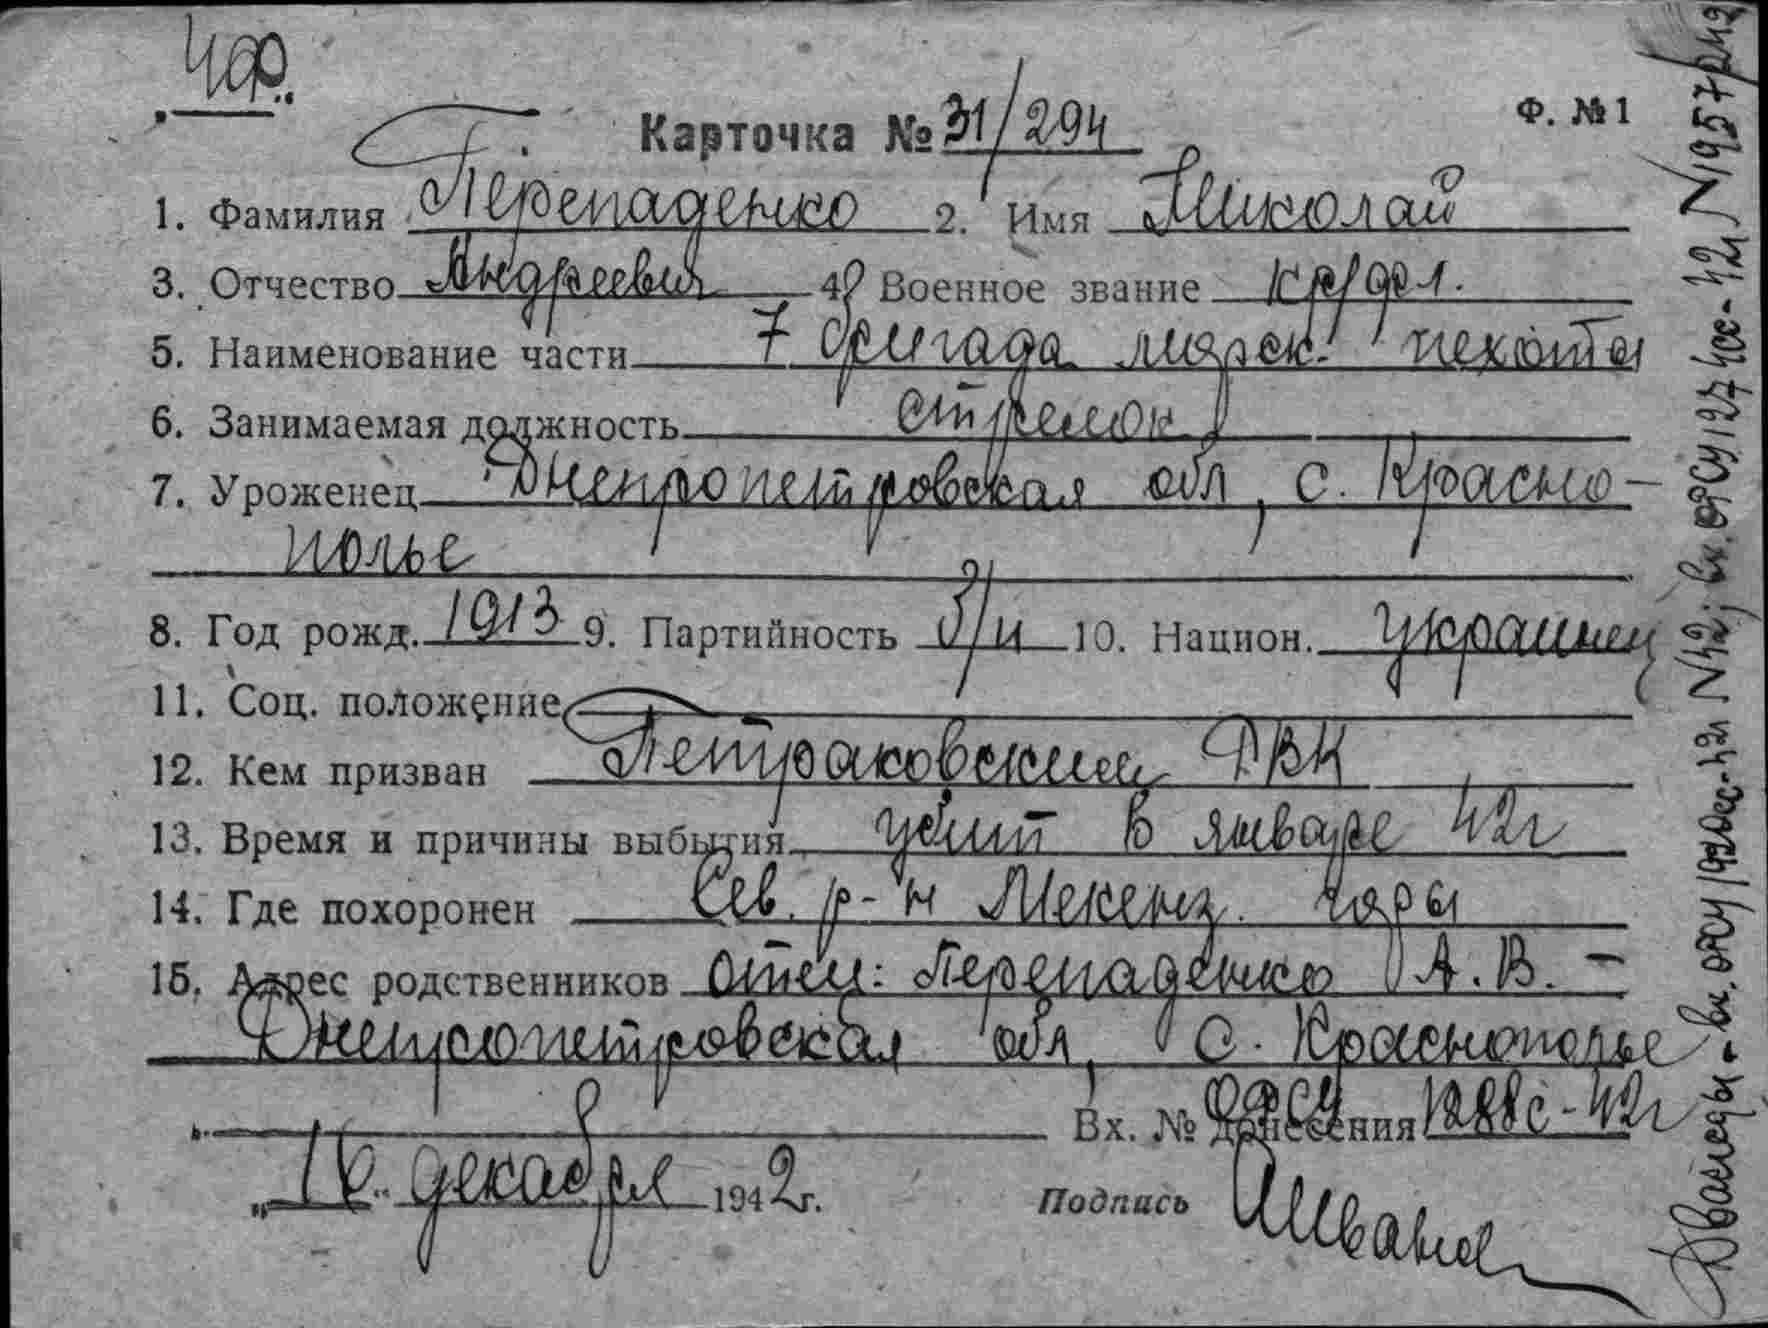 Чср.
Ф. №1
Карточка № 31/294
1. Фамилия Перепаденко 2. Имя Николай
3. Отчество Андреевич 4. Военное звание кр/фл.
5. Наименование части 7 бригада морск. пехоты
6. Занимаемая должность стрелок
7. Уроженец Днепропетровская обл, с. Красно-
полье
8. Год рожд. 1913 9. Партийность б/п 10. Национ. украинец
11. Соц. положение
12. Кем призван Петраковским РВК
13. Время и причины выбытия убит в январе 42г
14. Где похоронен Сев. р-н Мекенз. горы
15. Адрес родственников отец: Перепаденко А. В. –
Днепропетровская обл, с. Краснополье
Вх. № донесения 1288с-42г
„16" декабря 1942г.
Подпись